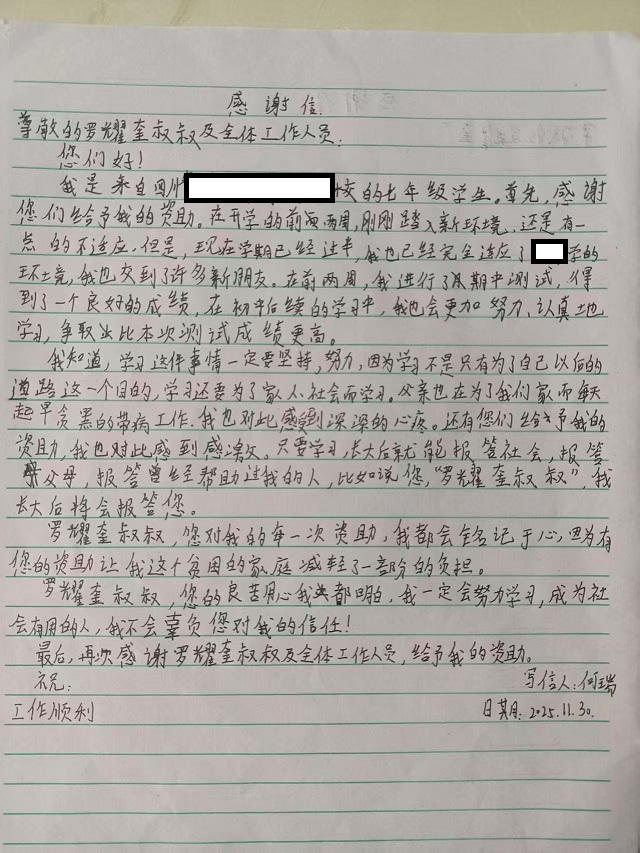 感谢信
尊敬的罗耀奎叔叔及全体工作人员:
您们好!
我是来自四川 校的七年级学生。首先,感谢
您们给予我的资助。在开学的前两周,刚刚踏入新环境,还是有一
点的不适应,但是,现在学期已经过半,我也已经完全适应了 学的
环境,我也交到了许多新朋友。在前两周,我进行了半期中测试,得
到了一个良好的成绩,在初中后续的学习中,我也会更加努力、认真地
学习,争取比本次测试成绩更高。
我知道,学习这件事情一定要坚持,努力,因为学习不是只有为了自己以后的
道路这一个目的,学习还要为了家人、社会而学习。父亲也在为了我们家而每天
起早贪黑的带病工作,我也对此感到深深的心疼。还有您们给予我的
资助,我也对此感到感激。只要学习,长大后就能报答社会,报答
父母,报答曾经帮助过我的人,比如说您,“罗耀奎叔叔”,我
长大后将会报答您。
罗耀奎叔叔,您对我的每一次资助,我都会铭记于心,因为有
您的资助让我这个贫困的家庭减轻了一部分的负担。
罗耀奎叔叔,您的良苦用心我都明白,我一定会努力学习,成为社
会有用的人,我不会辜负您对我的信任!
最后,再次感谢罗耀奎叔叔及全体工作人员,给予我的资助。
祝:
工作顺利
写信人:何瑞
日期:2025.11.30.